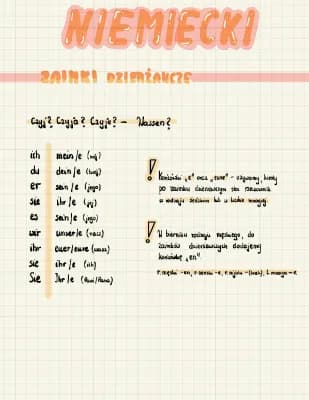 NIEMIECKI
ZAIMKI DZIERŻAWCZE
Czyj? Czyja? Czyje? – Wessen?
ich mein/e (mój)
du dein/e (twój)
er sein/e (jego)
sie ihr/e (jej)
es sein/e (jego)
wir unser/e (nasz)
ihr euer/eure (wasz)
sie ihr/e (ich)
Sie Ihr/e (Pani/Pana)
! Końcówki „e" oraz „eure" - używamy, kiedy
po zaimku dzierżawczym stoi rzeczownik
w rodzaju żeńskim lub w liczbie mnogiej.
! W bierniku rodzaju męskiego, do
zaimków dzierżawczych dodajemy
końcówkę „en"
r. męski -en, r. żeński -e, r. nijaki - (brak), l. mnoga -e